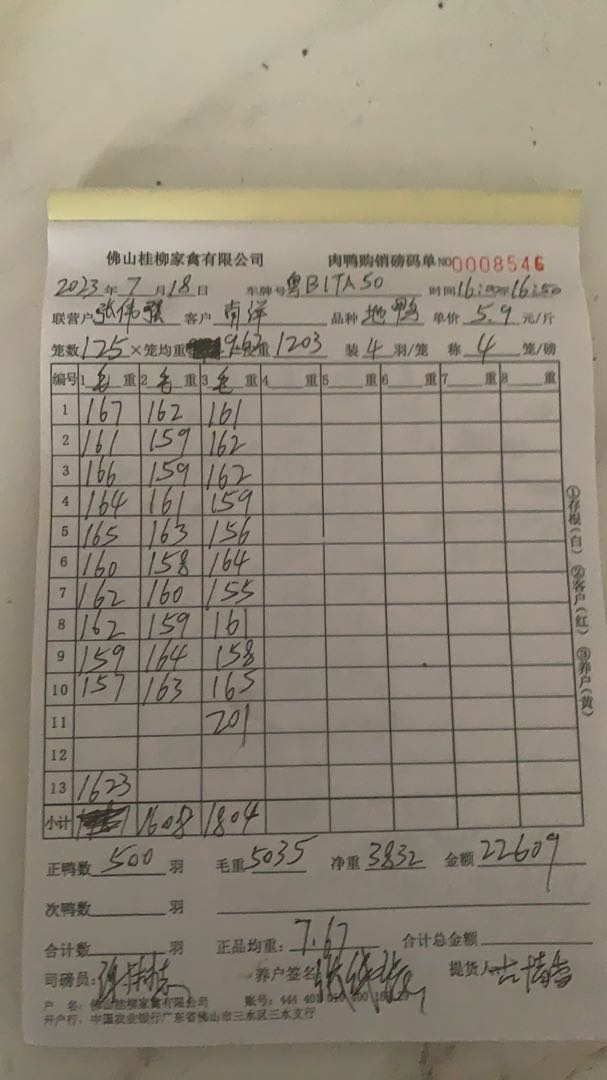 佛山桂柳家禽有限公司 肉鸭购销磅码单 NO 0008546
2023年7月18日 车牌号 粤B1TA50 时间16:00至16:50
联营户 张伟强 客户 南洋 品种 地鸭 单价 5.9 元/斤
笼数 125 ×笼均重 963 重 1203 装 4 羽/笼 称 4 笼/磅
编号 1 毛 重 2 毛 重 3 毛 重 4 重 5 重 6 重 7 重 8 重
1 167 162 161
2 161 159 162
3 166 159 162
4 164 161 159
5 165 163 156
6 160 158 164
7 162 160 155
8 162 159 161
9 159 164 158
10 157 163 165
11 201
12
13 1623
小计 1608 1804
正鸭数 500 羽 毛重 5035 净重 3832 金额 22609
次鸭数 羽
合计数 羽 正品均重: 7.67 合计总金额
司磅员: 养户签名 提货人
户 名: 佛山桂柳家禽有限公司 账号: 444 401
开户行: 中国农业银行广东省佛山市三水区三水支行
①存根(白) ②客户(红) ③养户(黄)